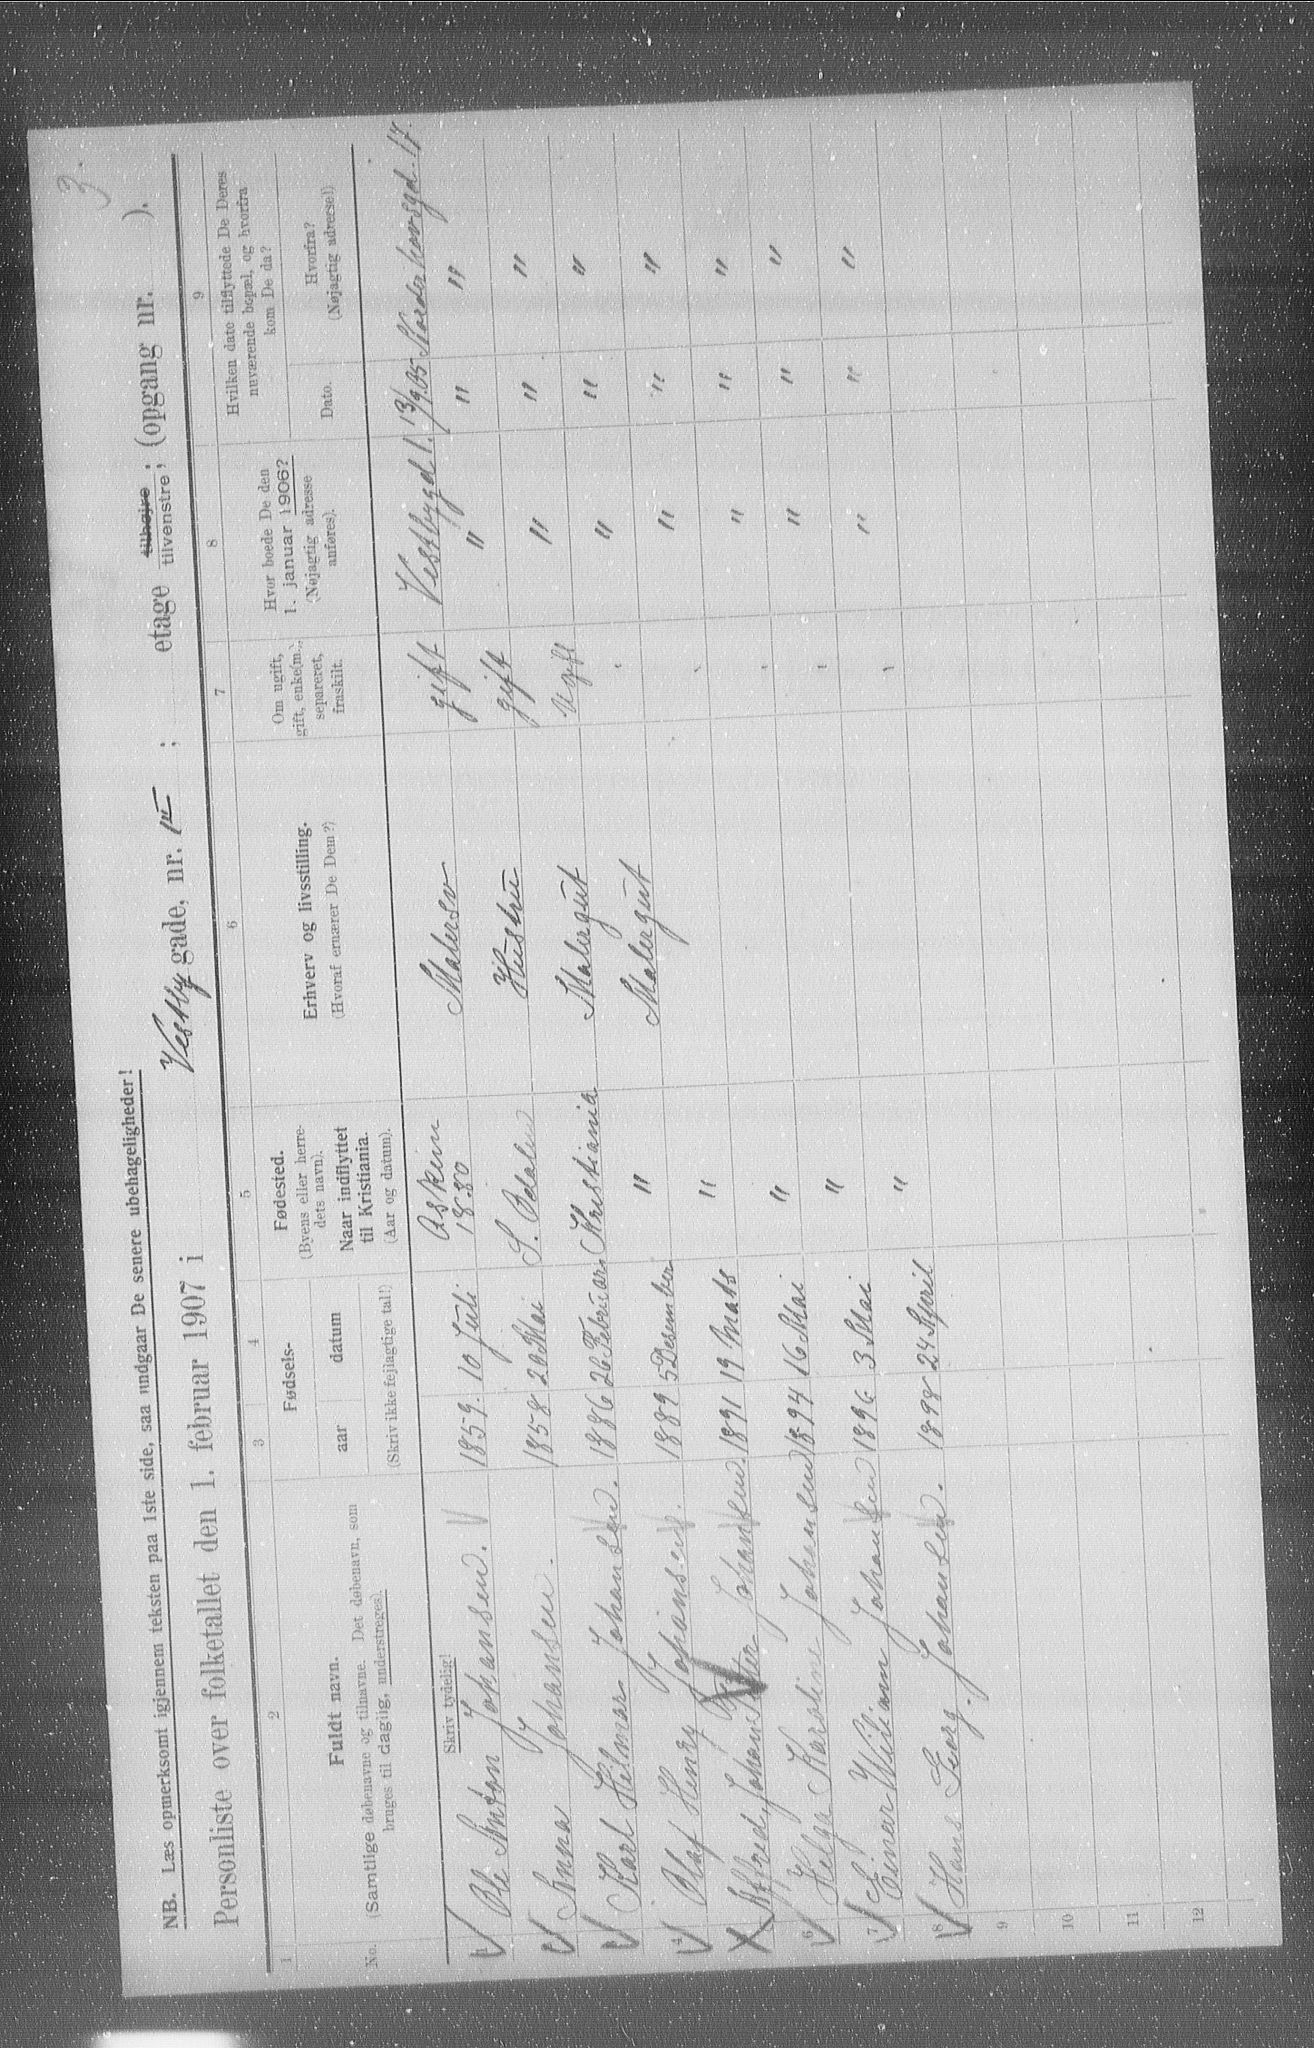 3.
NB. Læs opmerksomt igjennem teksten paa 1ste side, saa undgaar De senere ubehageligheder!
Personliste over folketallet den 1. februar 1907 i Vestby gade, nr. 1 ; etage tilhøjre tilvenstre; (opgang nr. ).
1 2 3 4 5 6 7 8 9
No. Fuldt navn. (Samtlige døbenavne og tilnavne. Det døbenavn, som bruges til daglig, understreges).
Fødsels- aar datum (Skriv ikke fejlagtige tal!)
Fødested. (Byens eller herredets navn). Naar indflyttet til Kristiania. (Aar og datum).
Erhverv og livsstilling. (Hvoraf ernærer De Dem?)
Om ugift, gift, enke(m.), separeret, fraskilt.
Hvor boede De den 1. januar 1906? (Nøjagtig adresse anføres).
Hvilken date tilflyttede De Deres nuværende bopæl, og hvorfra kom De da?
Dato. Hvorfra? (Nøjagtig adresse!)
Skriv tydelig!
Ole Anton Johansen. 1859. 10 Juli. Askim 1880 Malersv gift Vestbygd 1. 13/9.05 Norderhovsgd. 17.
Anna Johansen. 1858 20 Mai S. Odalen Hustru gift " " "
Karl Helmar Johansen. 1886 26 Februar. Kristiania Malergut ugift " " "
4 Olaf Henry Johansen. 1889 5 Desember " Malergut " " " "
Alfred Johan Johansen 1891 19 Mats " " " " "
6 Helga Karoline Johansen 1894 16 Mai " " " " "
7 Einar Wilhelm Johansen 1896 3 Mai " " " " "
8 Hans Georg. Johansen. 1898 24 April " " " " "
9
10
11
12